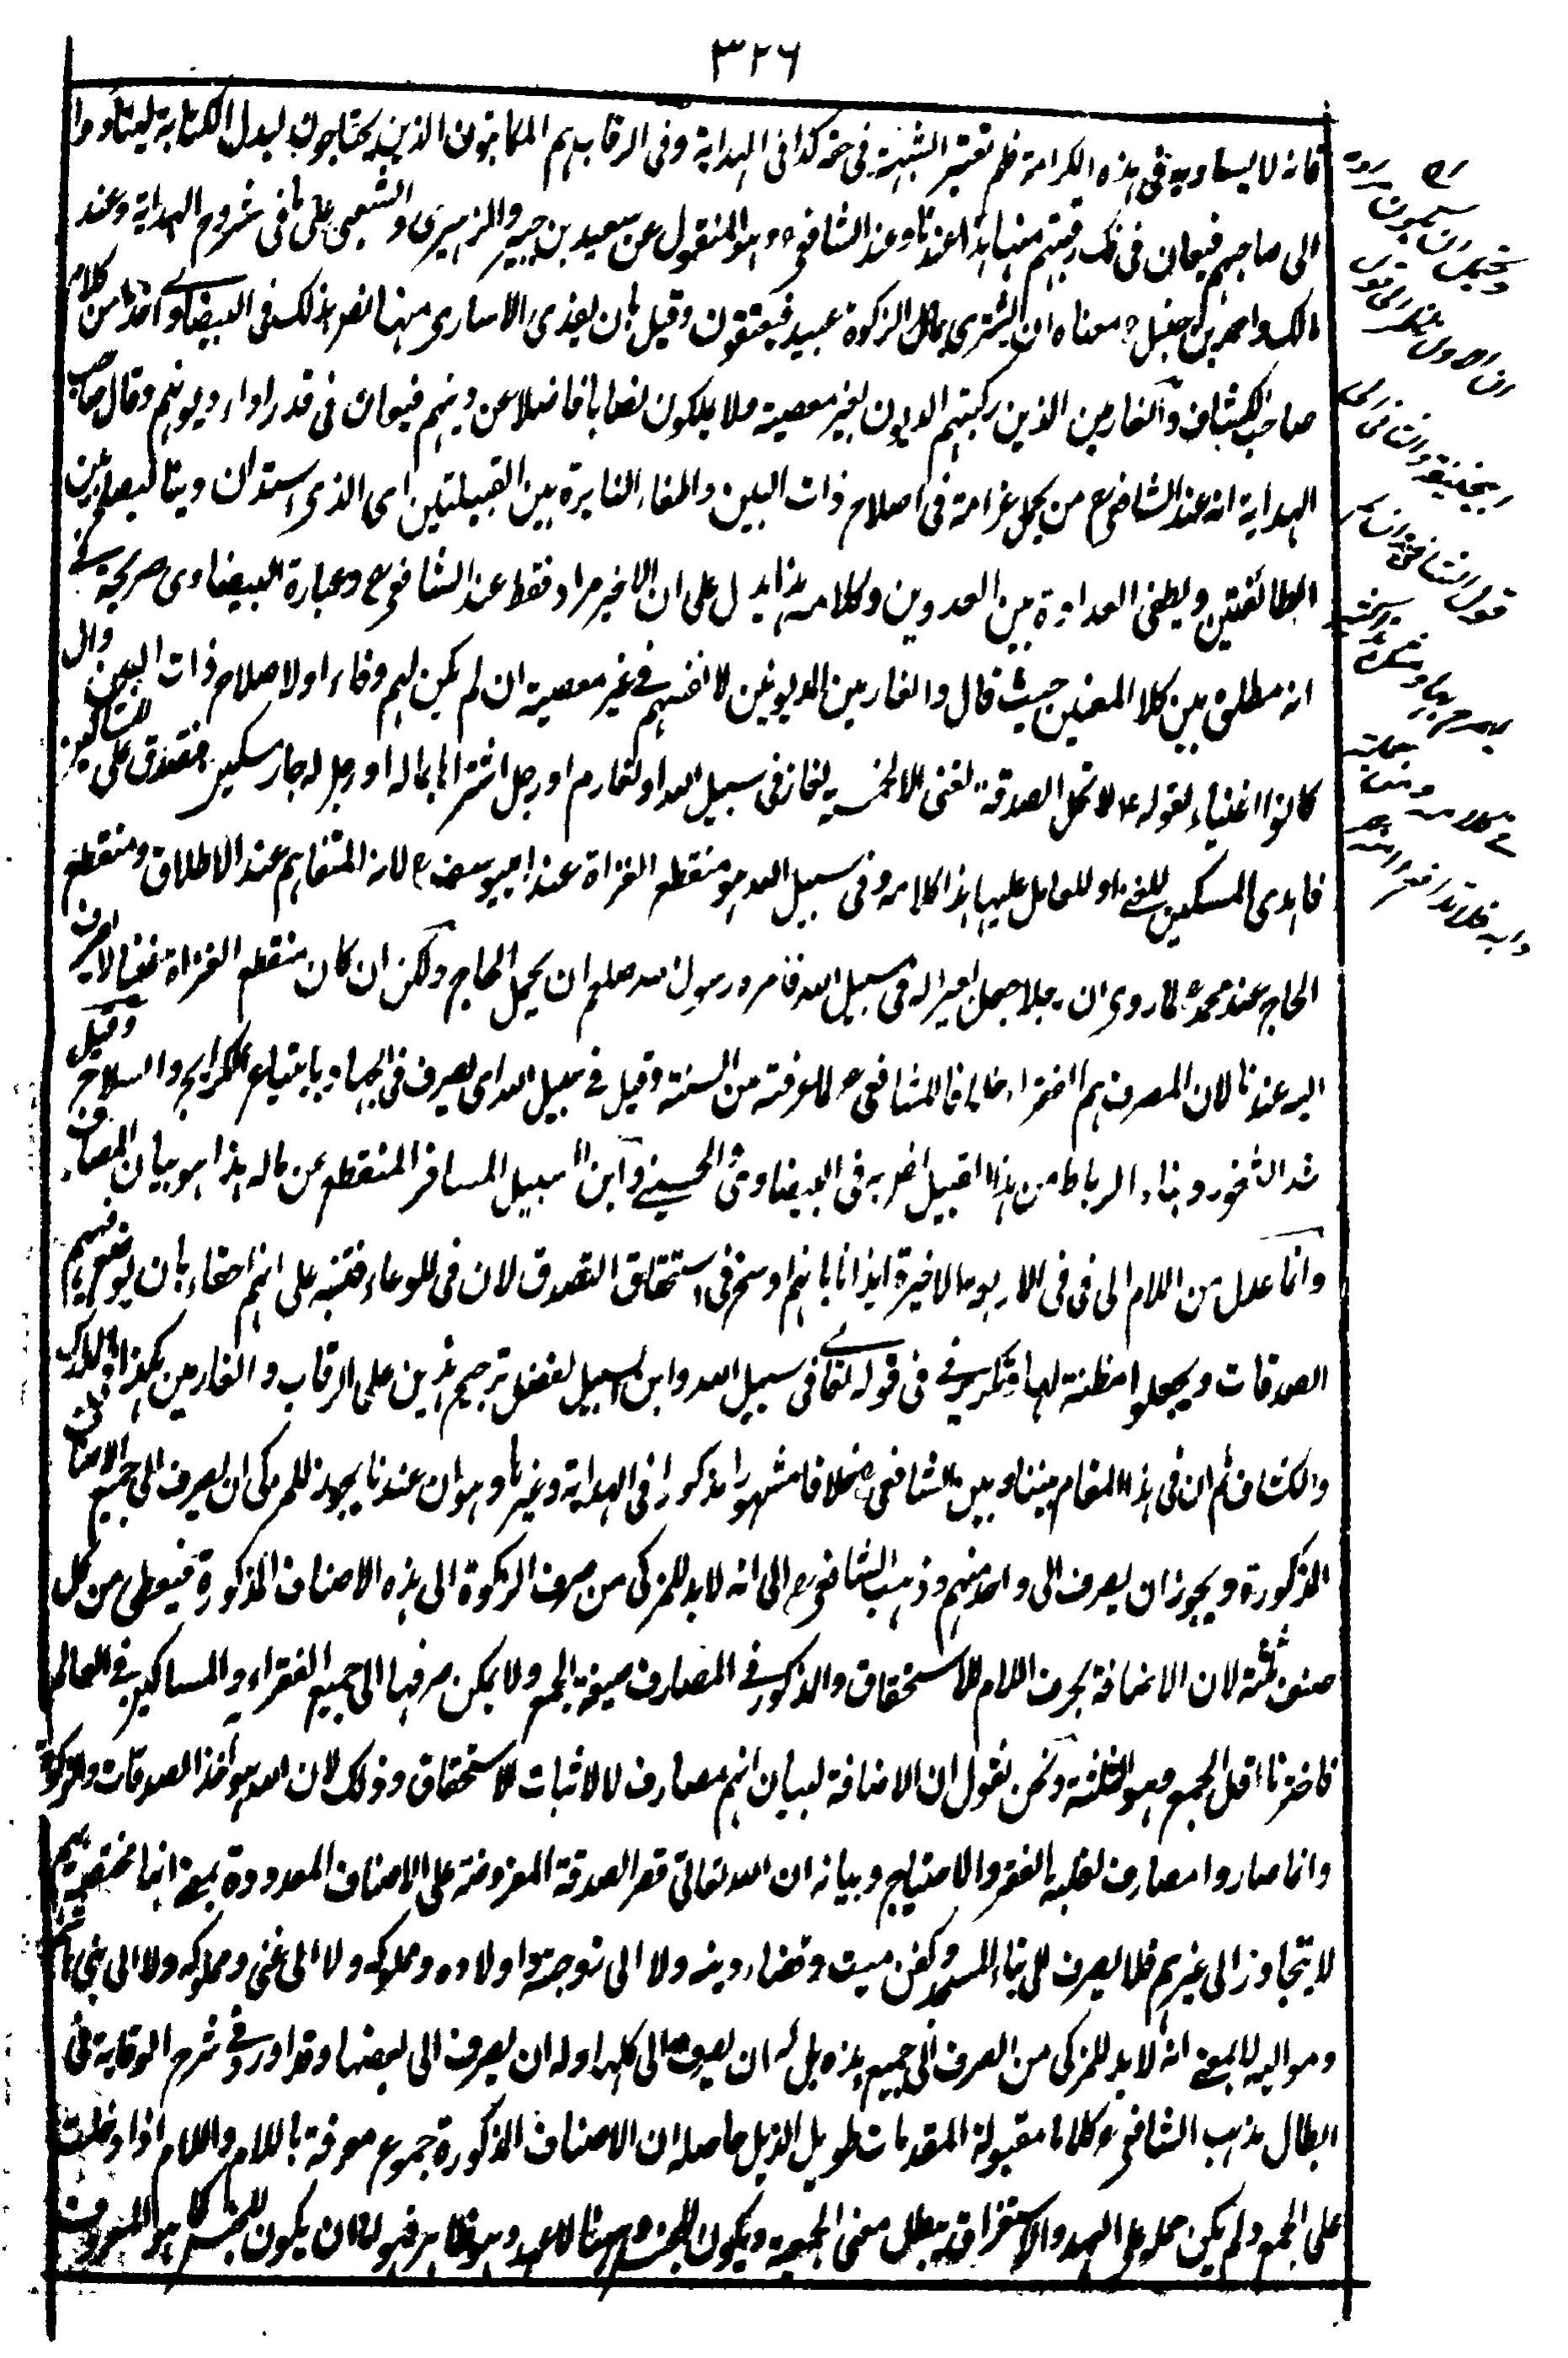 ٣٢٦
فانه لا يساويه في هذه الكرامة فلم تعتبر الشبهة في حقه كذا في الهداية وفي الرقاب هم المكاتبون الذين يحتاجون لبدل الكتابة ليتادوا
الى صاحبهم فيعان في فك رقبتهم منها هذا عندنا وعند الشافعي رح وهو المنقول عن سعيد بن جبير والزهيري والشعبي على ما في شروح الهداية وعند
مالك واحمد بن حنبل رح معناه ان يشترى بمال الزكوة عبيد فيعتقون وقيل بان يفدى الاسارى منها نص بذلك في البيضاوي اخذا من كلام
صاحب الكشاف والغارمين الذين ركبتهم الديون بغير معصية ولا يملكون نصابا فاضلا عن دينهم فيعان في قدر اداء ديونهم وقال صاحب
الهداية انه عند الشافعي رح من تحمل غرامة في اصلاح ذات البين واطفاء النايرة بين القبيلتين اى الذى استدان دينا ليصلح بين
الطائفتين ويطفى العداوة بين العدوين وكلامه هذا يدل على ان الاخير مراد فقط عند الشافعي رح وعبارة البيضاوى صريحة في
انه مطلق بين كلا المعنيين حيث قال والغارمين المديونين لانفسهم في غير معصية ان لم يكن لهم وفاء او لاصلاح ذات البين وان
كانوا اغنياء لقوله ع لا تحل الصدقة لغنى الا لخمسة لغاز في سبيل الله او لغارم او رجل اشتراها بماله او رجل له جار مسكين فتصدق على المسكين
فاهدى المسكين للغنى او للعامل عليها هذا كلامه وفي سبيل الله هو منقطع الغزاة عند ابيوسف رح لانه المتفاهم عند الاطلاق ومنقطع
الحاج عند محمد رح لما روى ان رجلا جعل بعيرا له في سبيل الله فامره رسول الله صلعم ان يحمل الحاج ولكن ان كان منقطع الغزاة غنيا لا يصرف
اليه عندنا لان المصرف هم الفقراء خلافا للشافعي رح لما عرفته من السنة وقيل في سبيل الله اى يصرف في الجهاد بابتياع الكراع والسلاح وقيل
شد الثغور وبناء الرباط من هذا القبيل نص به في البيضاوى والحسيني وابن السبيل المسافر المنقطع عن ماله هذا هو بيان المصارف
وانما عدل من اللام الى في في الاربعة الاخيرة ايذانا بانهم ارسخ في استحقاق التصدق لان في للوعاء فنبه على انهم احقاء بان يوضع فيهم
الصدقات ويجعلوا مظنة لها وتكرير في في قوله تعالى في سبيل الله وابن السبيل لفضل ترجيح هذين على الرقاب والغارمين هكذا في المدارك
والكشاف ثم ان في هذا المقام بيننا وبين الشافعي رح خلافا مشهورا مذكورا في الهداية وغيرها وهو ان عندنا يجوز للمزكى ان يصرف الى جميع الاصناف
المذكورة ويجوز ان يصرف الى واحد منهم وذهب الشافعي رح الى انه لا بد للمزكى من صرف الزكوة الى هذه الاصناف المذكورة فيعطى من كل
صنف ثلثة لان الاضافة بحرف اللام للاستحقاق والمذكور في المصارف صيغة الجمع ولا يمكن صرفها الى جميع الفقراء والمساكين في العالم
فاخذنا اقل الجمع وهو الثلثة ونحن نقول ان الاضافة لبيان انهم مصارف لا لاثبات الاستحقاق وذلك لان الله هو اخذ الصدقات والزكوة
وانما صاروا مصارف لعلية الفقر والاحتياج وبيانه ان الله تعالى قصر الصدقة المفروضة على الاصناف المعدودة بمعنى انها مختصة بهم
لا يتجاوز الى غيرهم فلا يصرف الى بناء المسجد وكفن ميت وقضاء دينه ولا الى زوجته واولاده ومملوكه ولا الى غنى ومملوكه ولا الى بنى هاشم
ومواليه لا بمعنى انه لا بد للمزكى من الصرف الى جميع هذه بل له ان يصرف الى كلها وله ان يصرف الى بعضها وقد اورد في شرح الوقاية في
ابطال مذهب الشافعي رح كلاما مقبولة المقدمات طويل الذيل حاصله ان الاصناف المذكورة جموع معرفة باللام واللام اذا دخلت
على الجمع ولم يكن حمله على العهد والاستغراق يبطل معنى الجمعية ويكون للجنس وههنا لا عهد وهو ظاهر فهو اما ان يكون للجنس كما هو المعروف